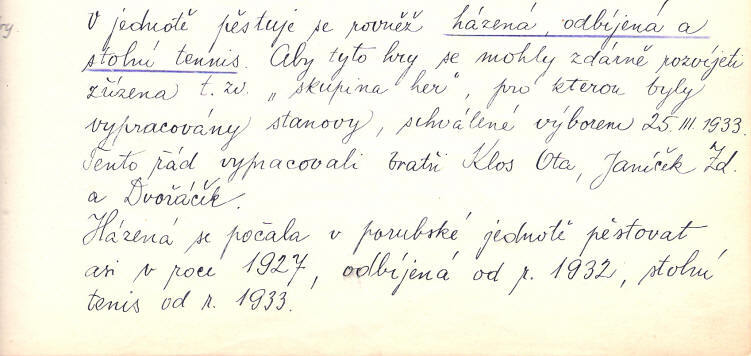 ry.
V jednotě pěstuje se rovněž házená, odbíjená a
stolní tennis. Aby tyto hry se mohly zdárně rozvíjeti
zřízena t. zv. „skupina her", pro kterou byly
vypracovány stanovy, schválené výborem 25. III. 1933.
Tento řád vypracovali bratři Klos Ota, Janíček Zd.
a Dvořáčík.
Házená se počala v porubské jednotě pěstovat
asi v roce 1927, odbíjená od r. 1932, stolní
tenis od r. 1933.